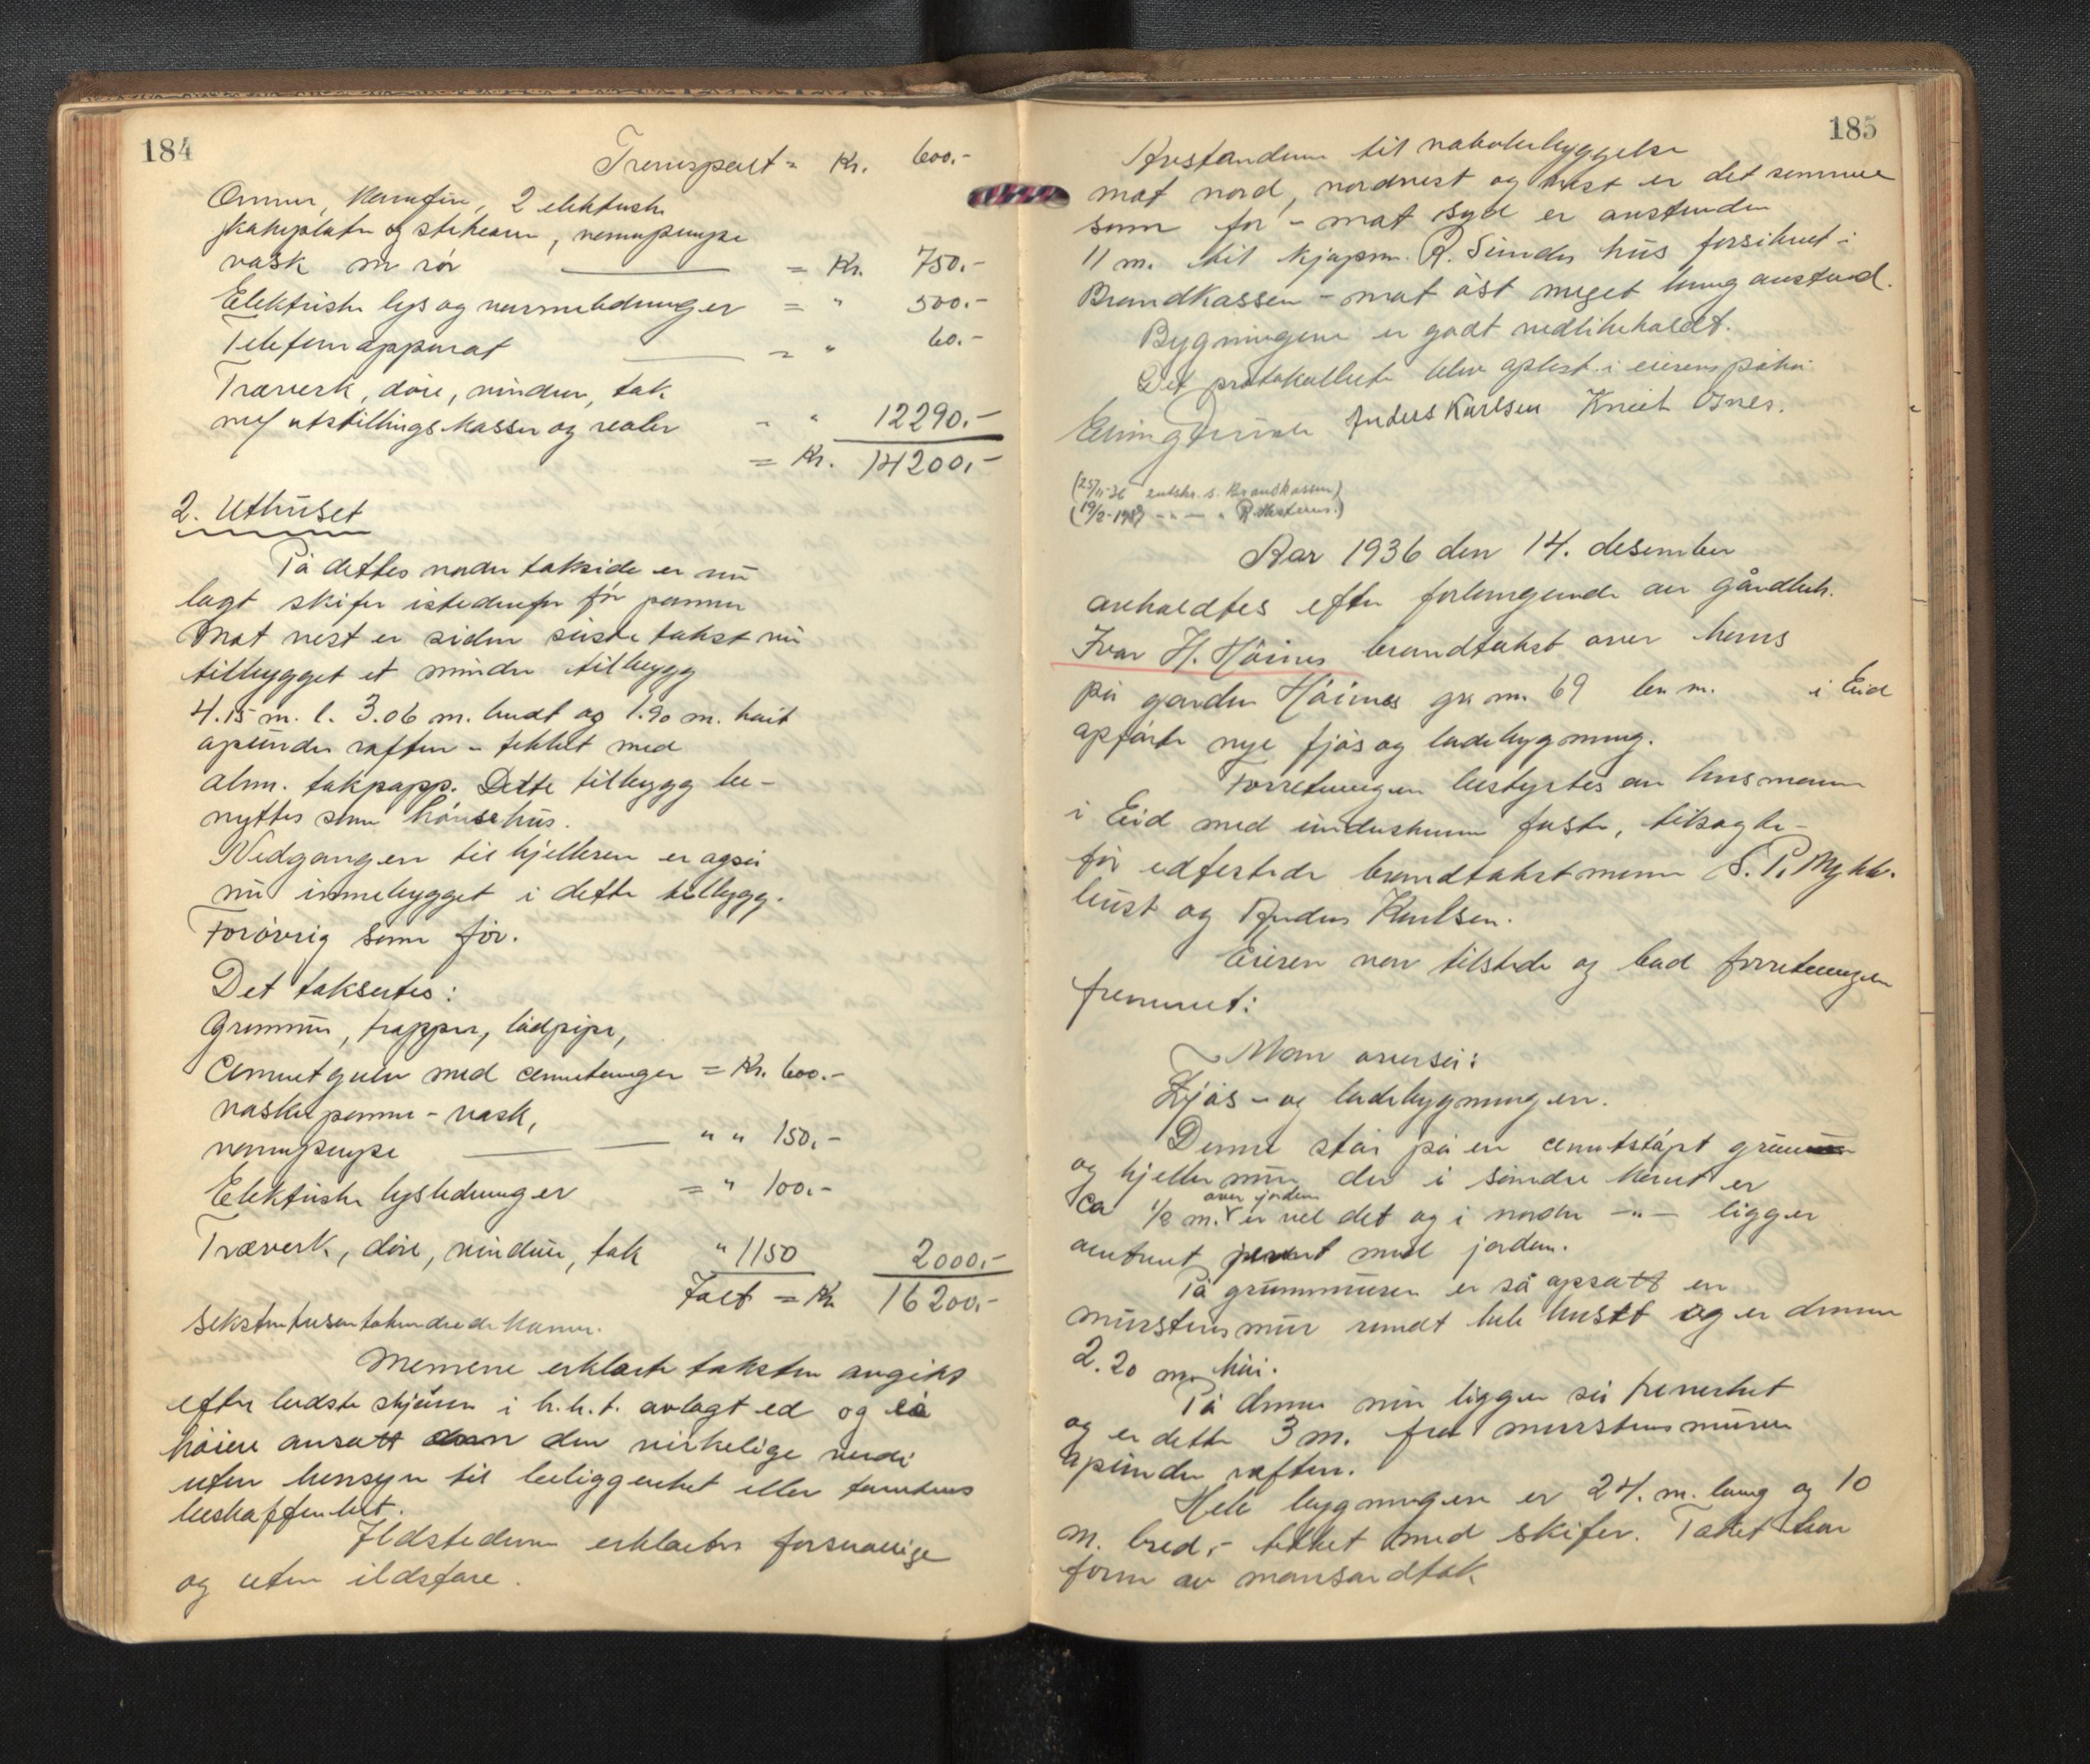 184
Transport = Kr. 600.-
Ovner, komfur, 2 elektriske
kokeplater og stekeovn, vannpumpe
vask m rör = Kr. 750.-
Elektriske lys og varmeledninger = " 500.-
Telefonapparat = " 60.-
Træverk, döre, vinduer, tak
m/ utstillingskasser og reoler - " 12290.-
= Kr. 14200.-
2. Uthuset
På dettes nordre takside er nu
lagt skifer istedenfor för panner
Mot vest er siden siste takst nu
tilbygget et mindre tilbygg
4.15 m. l. 3.06 m. bredt og 1.90 m. höit
opunder raften - tekket med
alm. takpapp. Dette tilbygg be-
nyttes som hönsehus.
Nedgangen til kjelleren er også
nu innebygget i dette tilbygg.
Forövrig som för.
Det taksertes:
Grunnmur, trapper, lödpipe,
Cementgulv med cementanger = Kr. 600.-
vaskepanne - vask,
vannpumpe " " 150.-
Elektriske lysledninger = " 100.-
Træverk, döre, vinduer, tak " 1150 2000.-
Ialt = Kr 16200.-
Sekstentusentohundrede kroner.
Mennene erklærte taksten avgitt
efter bedste skjönn i h.h.t. avlagt ed og ei
höiere ansatt enn den virkelige verdi
uten hensyn til beliggenhet eller tomtens
beskaffenhet.
Ildstedene erklærtes forsvarlige
og uten ildsfare.
185
Avstanden til nabobebyggelse
mot nord, nordvest og vest er det samme
som för - mot syd er avstanden
11 m. til kjöpm. R. Sundes hus forsikret i
Brandkassen - mot öst meget lang avstand.
Bygningene er godt vedlikeholdt.
Det protokollerte blev oplest i eierens påhör
Anders Karlsen Knut Osnes.
(25/11-36 utskr. s. Brandkassen)
Aar 1936 den 14. desember
avholdtes efter forlangende av gårdbr.
Ivar H. Höines brandtakst over hans
på garden Höines gr. nr. 69 br. nr. i Eid
opförte nye fjös og ladebygning.
Forretningen bestyrtes av lensmann
i Eid med undershevne faste, tilsagte
för edfestede brandtakstmenn S. P. Mykle-
bust og Anders Karlsen.
Eieren var tilstede og bad forretningen
fremmet:
Man overser:
Fjös - og ladebygningen.
Denne står på en cementstöpt grunn
og kjellermur der i söndre kant er
ca 1/2 m. over jorden er vel det og i nordre -"- ligger
omtrent jevnt med jorden.
På grunnmuren er så opsatt en
murstensmur rundt hele huset og er denne
2.20 m. höi.
På denne mur ligger så treverket
og er dette 3 m. fra murstensmuren
opunder raften.
Hele bygningen er 24. m. lang og 10
m. bred, - tekket med skifer. Taket har
form av mansardtak